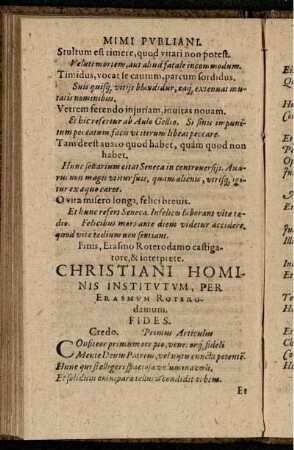 MIMI PVBLIANI.
Stultum est timere, quod vitari non potest.
Veluti mortem, aut aliud fatale incommodum.
Timidus, vocat se cautum, parcum sordidus.
Suis quisq; vitijs blanditur, eaq; extenuat mu-
tatis nominibus.
Veterem ferendo injuriam, invitas novam.
Et hic refertur ab Aulo Gellio. Si sinis impuni-
tum peccatum facis vt iterum libeat peccare.
Tam deest avaro quod habet, quàm quod non
habet.
Hunc senarium citat Seneca in controversijs. Ava-
rus non magis vtitur suis, quam alienis, vtrisq; igi-
tur ex aquo caret.
O vita misero longa, felici brevis.
Et hunc refert Seneca. Infelices laborant vitæ tæ-
dio. Felicibus mors ante diem videtur accidere,
quod vitæ tedium non sentiant.
Finis, Erasmo Roterodamo castiga-
tore, & interprete.
CHRISTIANI HOMI-
NIS INSTITVTVM, PER
ERASMVM ROTERO-
damum.
FIDES.
Credo. Primus Articulus
COnfiteor primum ore pio, venerorq; fideli
Mente Deum Patrem, vel nutu cuncta potentē.
Hunc qui stelligeri spaciosa volumina cæli,
Et solidum omniparæ telluris condidit orbem.
Et